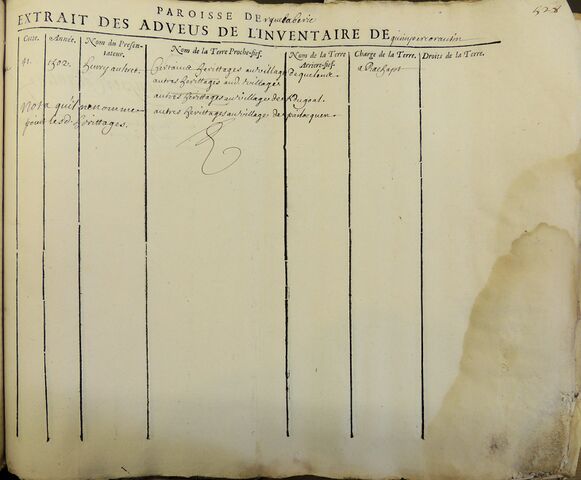 528
PAROISSE DE
EXTRAIT DES ADVEUS DE L'INVENTAIRE DE quimpercorantin
Cotte. Année. Nom du Presentateur. Nom de la Terre Proche-fief. Nom de la Terre Arriere-fief. Charge de la Terre. Droits de la Terre.
41. 1502. Henry
Certains herittages au village de
autres heritages aud. village
autres heritages au village de
autres herittages au village de
a Rachapt
Nota qu'il ne nomme
point lesd. herittages.